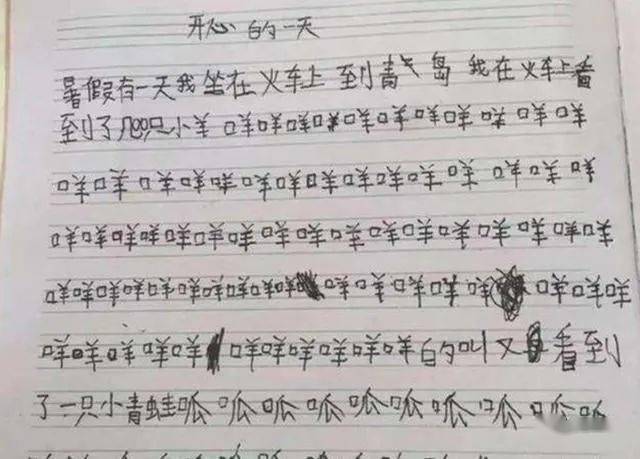 开心的一天
暑假有一天我坐在火车上到青岛我在火车上看
到了几只小羊咩咩咩咩咩咩咩咩咩咩咩
咩咩咩咩咩咩咩咩咩咩咩咩咩咩咩
咩咩咩咩咩咩咩咩咩咩咩咩咩咩咩咩咩咩
咩咩咩咩咩咩咩咩咩咩咩咩咩咩咩咩咩咩
咩咩咩咩咩咩咩咩咩咩咩的叫又看到
了一只小青蛙呱呱呱呱呱呱呱呱呱呱